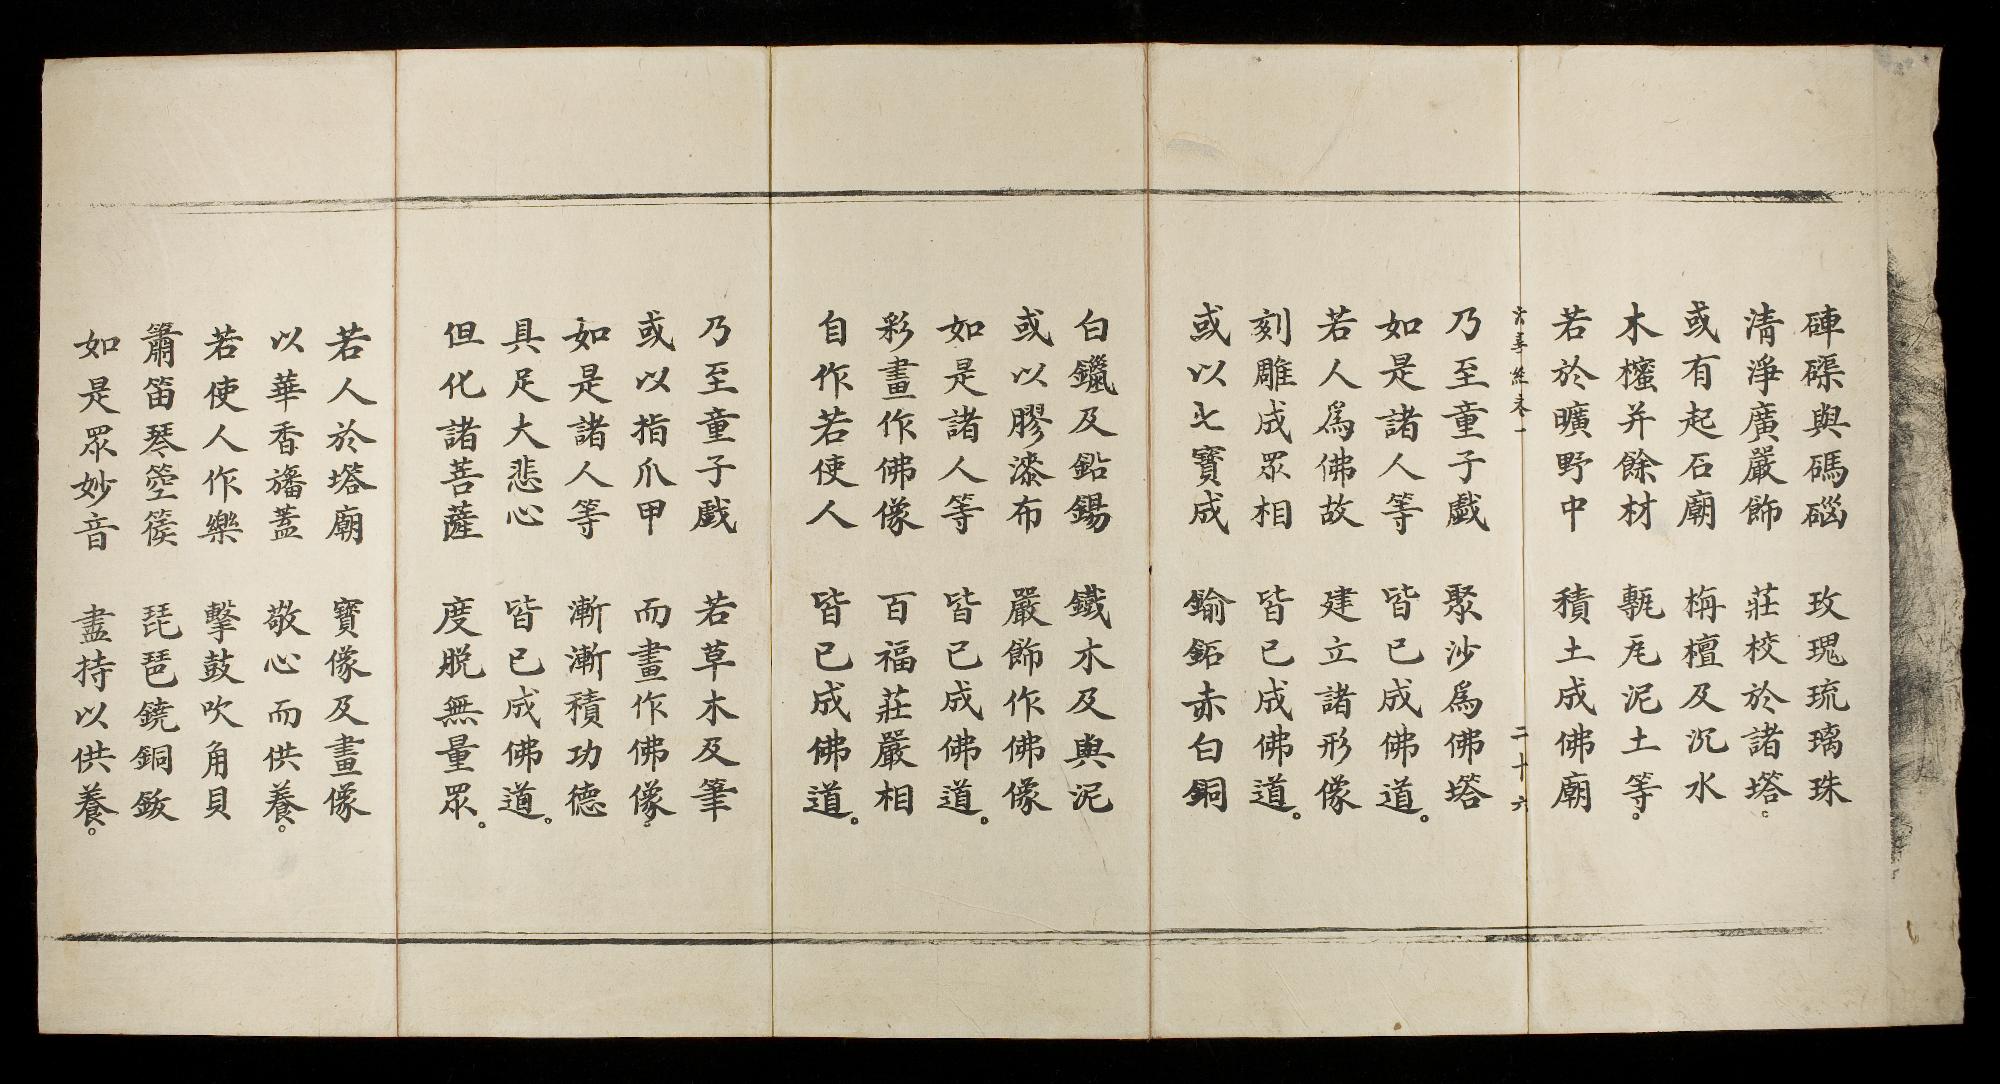 硨磲與碼碯　玫瑰琉璃珠
清淨廣嚴飾　莊校於諸塔。
或有起石廟　栴檀及沉水
木櫁并餘材　甎瓦泥土等。
若於曠野中　積土成佛廟
二十六
乃至童子戲　聚沙爲佛塔
如是諸人等　皆已成佛道。
若人爲佛故　建立諸形像
刻雕成眾相　皆已成佛道。
或以七寶成　鍮鉐赤白銅
白鑞及鉛錫　鐵木及與泥
或以膠漆布　嚴飾作佛像
如是諸人等　皆已成佛道。
彩畫作佛像　百福莊嚴相
自作若使人　皆已成佛道。
乃至童子戲　若草木及筆
或以指爪甲　而畫作佛像。
如是諸人等　漸漸積功德
具足大悲心　皆已成佛道。
但化諸菩薩　度脱無量眾。
若人於塔廟　寶像及畫像
以華香旛蓋　敬心而供養。
若使人作樂　擊鼓吹角貝
簫笛琴箜篌　琵琶鐃銅鈸
如是眾妙音　盡持以供養。